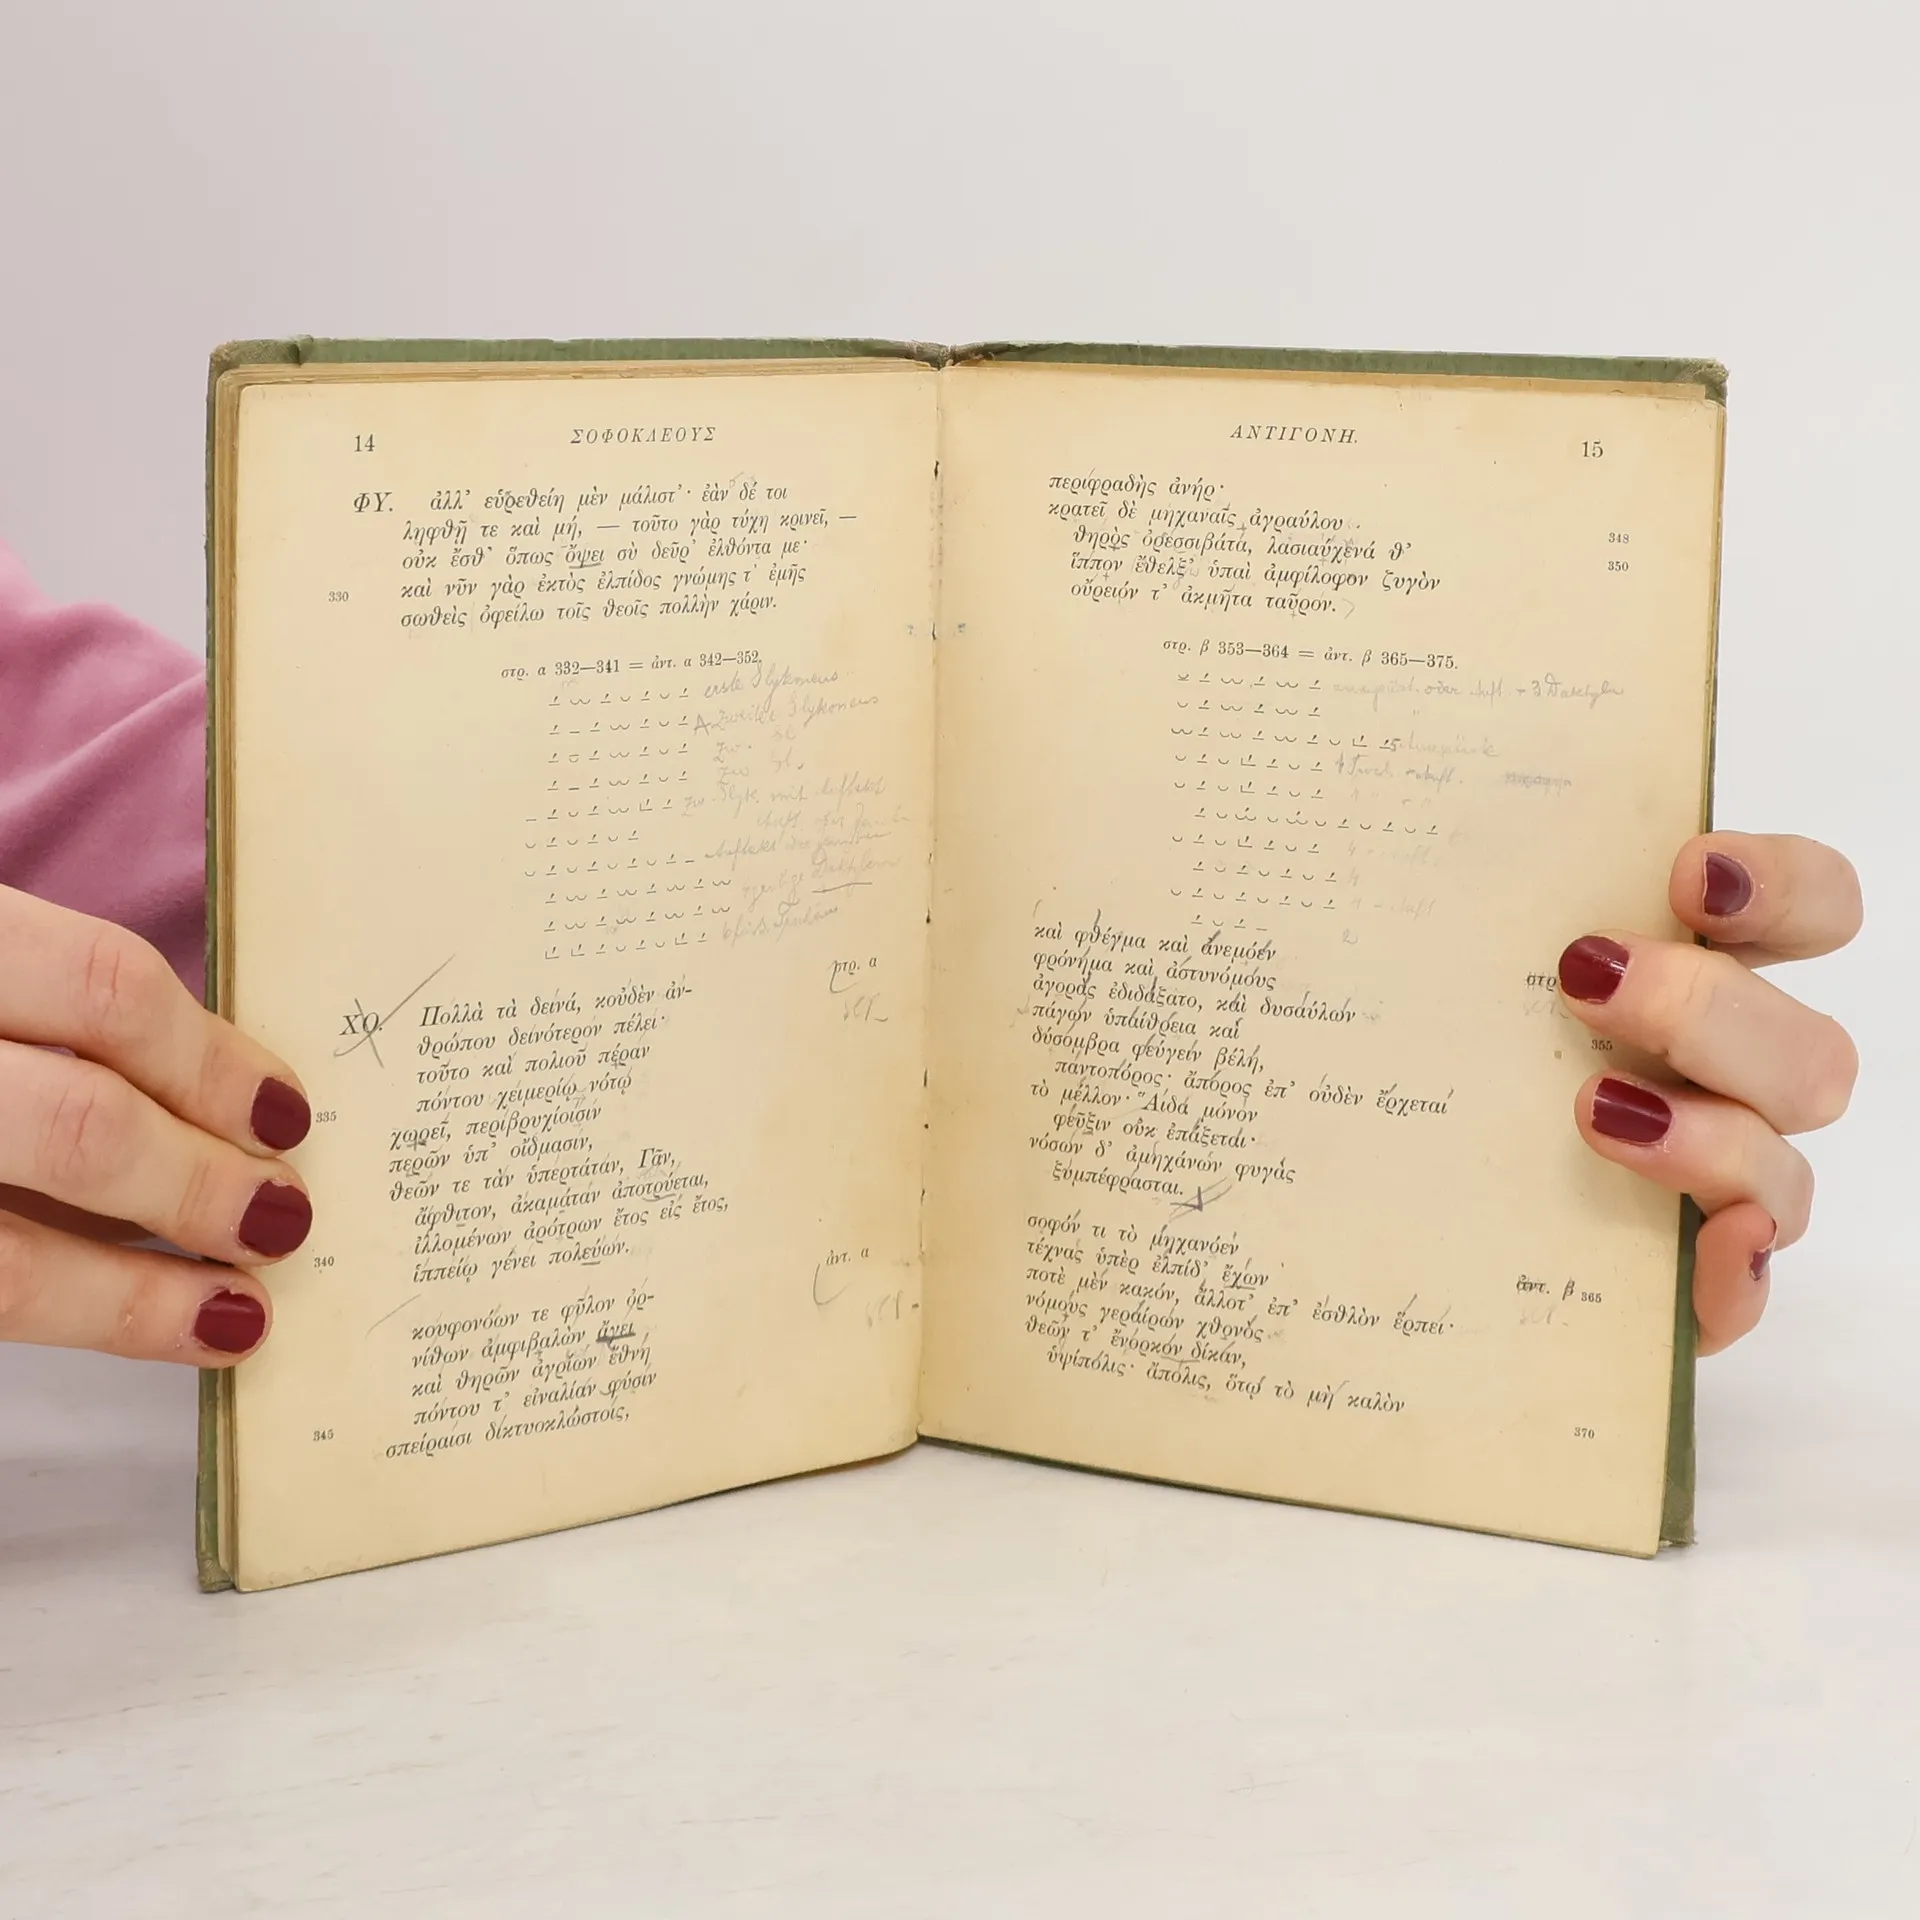 14 ΣΟΦΟΚΛΕΟΥΣ
ΦΥ. ἀλλ' εὑρεθείη μὲν μάλιστ'· ἐὰν δέ τοι
ληφθῇ τε καὶ μή, — τοῦτο γὰρ τύχη κρινεῖ, —
οὐκ ἔσθ' ὅπως ὄψει σὺ δεῦρ' ἐλθόντα με·
330 καὶ νῦν γὰρ ἐκτὸς ἐλπίδος γνώμης τ' ἐμῆς
σωθεὶς ὀφείλω τοῖς θεοῖς πολλὴν χάριν.
στρ. α 332—341 = ἀντ. α 342—352.
erste Glykoneus
zweiter Glykoneus
zw. Gl.
zw. Gl.
zw. Glyk. mit Auftakt
Auftakt oder Jamben
Daktylen
Trochäus
στρ. α
ΧΟ. Πολλὰ τὰ δεινά, κοὐδὲν ἀν-
θρώπου δεινότερον πέλει·
τοῦτο καὶ πολιοῦ πέραν
πόντου χειμερίῳ νότῳ
335 χωρεῖ, περιβρυχίοισιν
περῶν ὑπ' οἴδμασιν,
θεῶν τε τὰν ὑπερτάταν, Γᾶν,
ἄφθιτον, ἀκαμάταν ἀποτρύεται,
ἰλλομένων ἀρότρων ἔτος εἰς ἔτος,
340 ἱππείῳ γένει πολεύων.
ἀντ. α
κουφονόων τε φῦλον ὀρ-
νίθων ἀμφιβαλὼν ἄγει
καὶ θηρῶν ἀγρίων ἔθνη
πόντου τ' εἰναλίαν φύσιν
345 σπείραισι δικτυοκλώστοις,
ΑΝΤΙΓΟΝΗ. 15
περιφραδὴς ἀνήρ·
κρατεῖ δὲ μηχαναῖς ἀγραύλου
θηρὸς ὀρεσσιβάτα, λασιαύχενά θ' 348
ἵππον ἔθελξ' ὑπαὶ ἀμφίλοφον ζυγὸν 350
οὔρειόν τ' ἀκμῆτα ταῦρον.
στρ. β 353—364 = ἀντ. β 365—375.
oder Auft. + 3 Daktylen
καὶ φθέγμα καὶ ἀνεμόεν
φρόνημα καὶ ἀστυνόμους στρ
ἀγορὰς ἐδιδάξατο, καὶ δυσαύλων
πάγων ὑπαίθρεια καὶ 355
δύσομβρα φεύγειν βέλη,
παντοπόρος· ἄπορος ἐπ' οὐδὲν ἔρχεται
τὸ μέλλον· Ἅιδα μόνον
φεῦξιν οὐκ ἐπάξεται·
νόσων δ' ἀμηχάνων φυγὰς
ξυμπέφρασται.
σοφόν τι τὸ μηχανόεν
τέχνας ὑπὲρ ἐλπίδ' ἔχων ἀντ. β 365
ποτὲ μὲν κακόν, ἄλλοτ' ἐπ' ἐσθλὸν ἕρπει·
νόμους γεραίρων χθονὸς
θεῶν τ' ἔνορκον δίκαν,
ὑψίπολις· ἄπολις, ὅτῳ τὸ μὴ καλὸν 370